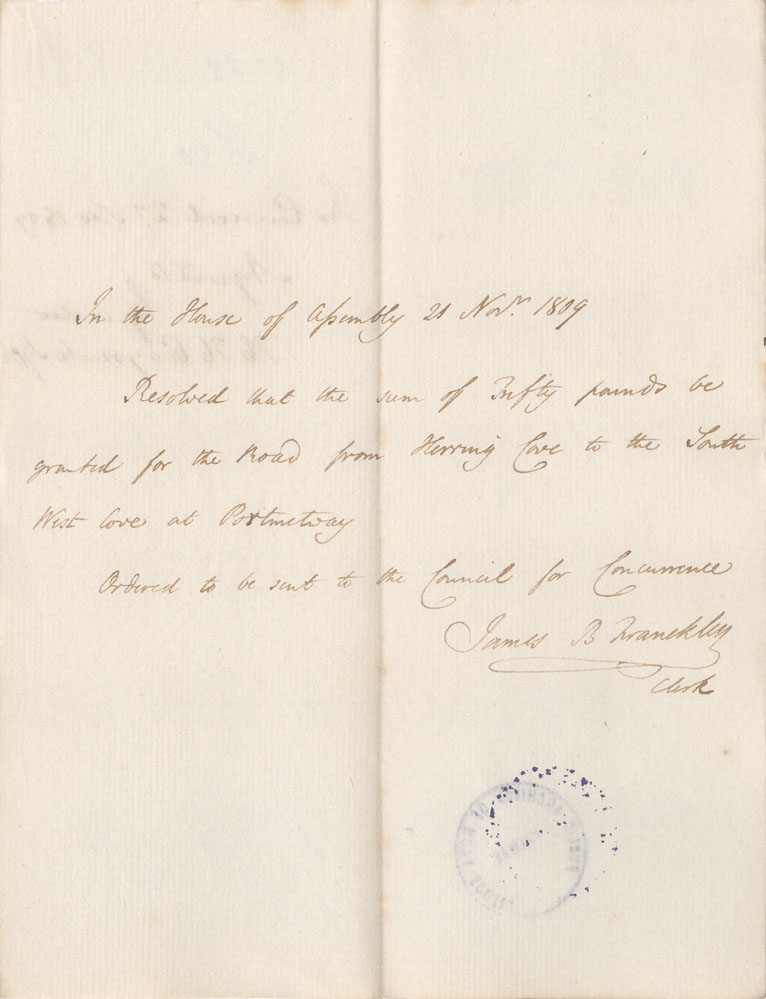 In the House of Assembly 21 Novr. 1809
Resolved that the sum of Fifty pounds be
granted for the Road from Herring Cove to the South
West Cove at Portmetway
Ordered to be sent to the Council for Concurrence
James B Franckley
Clerk